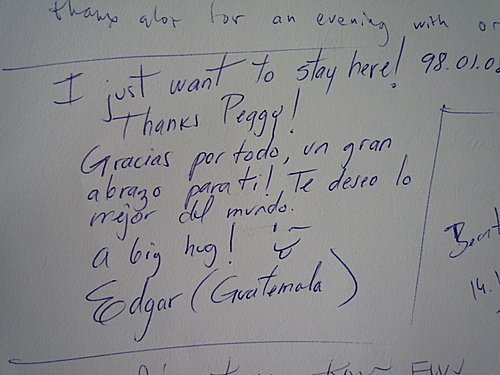 thanx alot for an evening with or
I just want to stay here! 98.01.02
Thanks Peggy!
Gracias por todo, un gran
abrazo para ti! Te deseo lo
mejor del mundo.
a big hug!
Edgar (Guatemala)
14.1